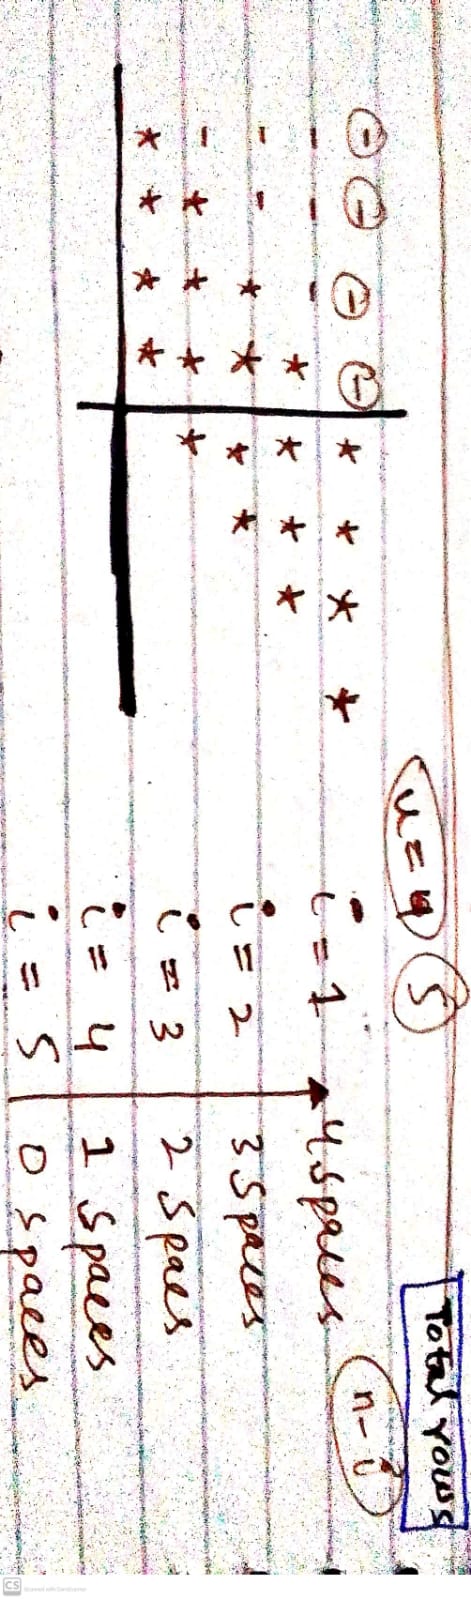 n = 4 5 Total rows
⊖ ⊖ ⊖ ⊖ * * * * i = 1 4 Spaces n - i
- - - * * * * i = 2 3 Spaces
- - * * * * i = 3 2 Spaes
- * * * * i = 4 1 Spaces
* * * * i = 5 0 Spaces
CS